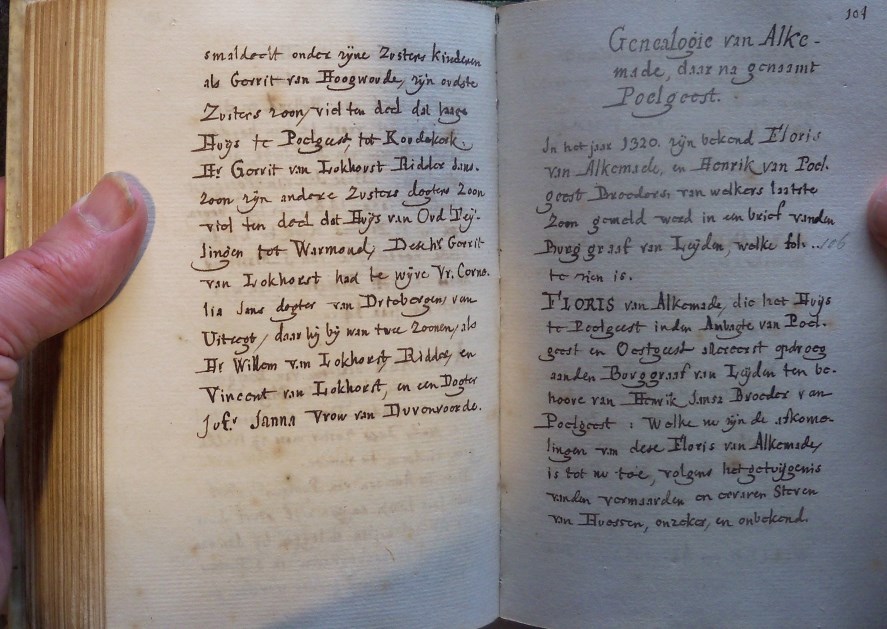 smaldeelt onder zijne Zusters kinderen
als Gerrit van Hoogwoude, zijn oudste
Zusters zoon, viel ten deel dat laage
Huys te Poelgeest, tot Koudekerk.
Hr Gerrit van Lokhorst Ridder Jans.
zoon zijn andere Zusters dogters Zoon
viel ten deel dat Huys van Oud Teij-
lingen tot Warmond, Deeze Hr Gerrit
van Lokhorst had te wijve Vr. Corne.
lia Jans dogter van Drtobergen, van
Uitregt, daar hij bij wan twee Zoonen, als
Hr Willem van Lokhorst, Ridder, en
Vincent van Lokhorst, en een Dogter
Jofr. Janna Vrow van Duvenvoorde.
104
Genealogie van Alke-
made, daar na genaamt
Poelgeest.
In het jaar 1320. zijn bekend Floris
van Alkemade, en Henrik van Poel.
geest Broeders, van welkers laatste
Zoon gemeld werd in een brief vanden
Burggraaf van Leijden, welke fol. .. 106
te zien is.
FLORIS van Alkemade, die het Huys
te Poelgeest inden Ambagte van Poel.
geest en Oestgeest allereerst opdroeg
aanden Borggraaf van Leijden ten be-
hoore van Henrik Jansz Broeder van
Poelgeest : Welke nu zijn de afkome-
lingen van deze Floris van Alkemade,
is tot nu toe, volgens het getuijgenis
vanden vermaarden en ervaren Steven
van Huessen, onzeker, en onbekend.